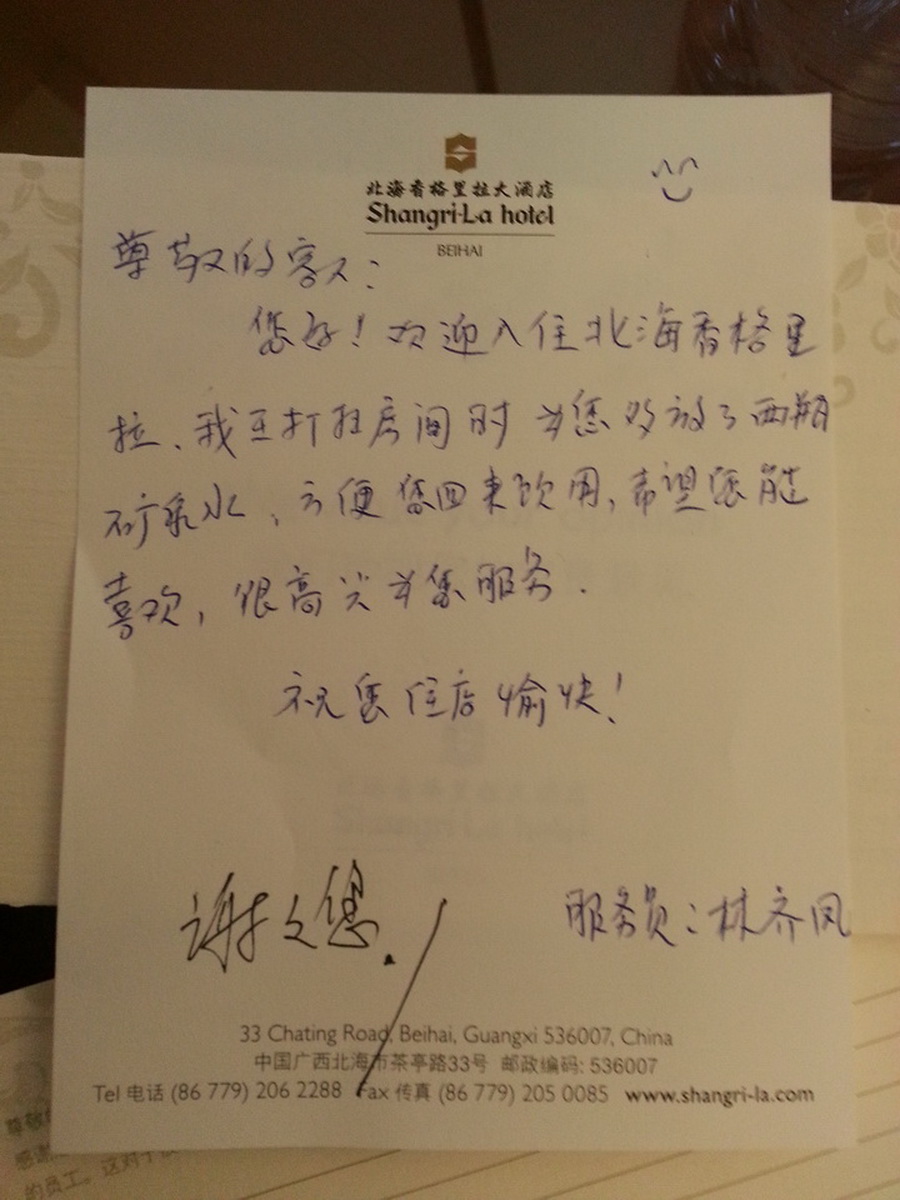 北海香格里拉大酒店
Shangri-La hotel
BEIHAI
尊敬的客人:
您好!欢迎入住北海香格里
拉、我在打扫房间时为您多放了两瓶
矿泉水,方便您回来饮用,希望您能
喜欢,很高兴为您服务.
祝您住店愉快!
谢谢您.
服务员:林齐凤
33 Chating Road, Beihai, Guangxi 536007, China
中国广西北海市茶亭路33号 邮政编码: 536007
Tel 电话 (86 779) 206 2288 Fax 传真 (86 779) 205 0085 www.shangri-la.com
尊敬
感谢
的员工。这对于